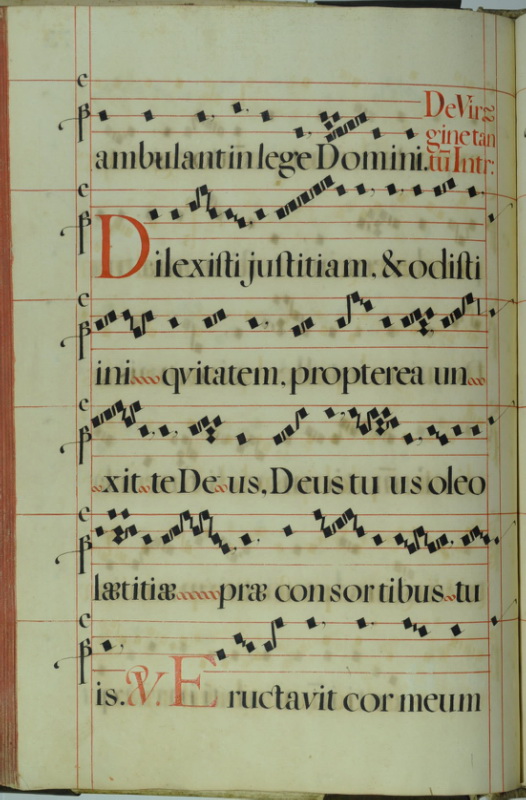 ambulant in lege Domini.
De Vir=
gine tan
tũ Intr:
Dilexiſti juſtitiam, & odiſti
ini qvitatem, propterea un
xit te De us, Deus tu us oleo
lætitiæ præ con sor tibus tu
is. V. Eructavit cor meum